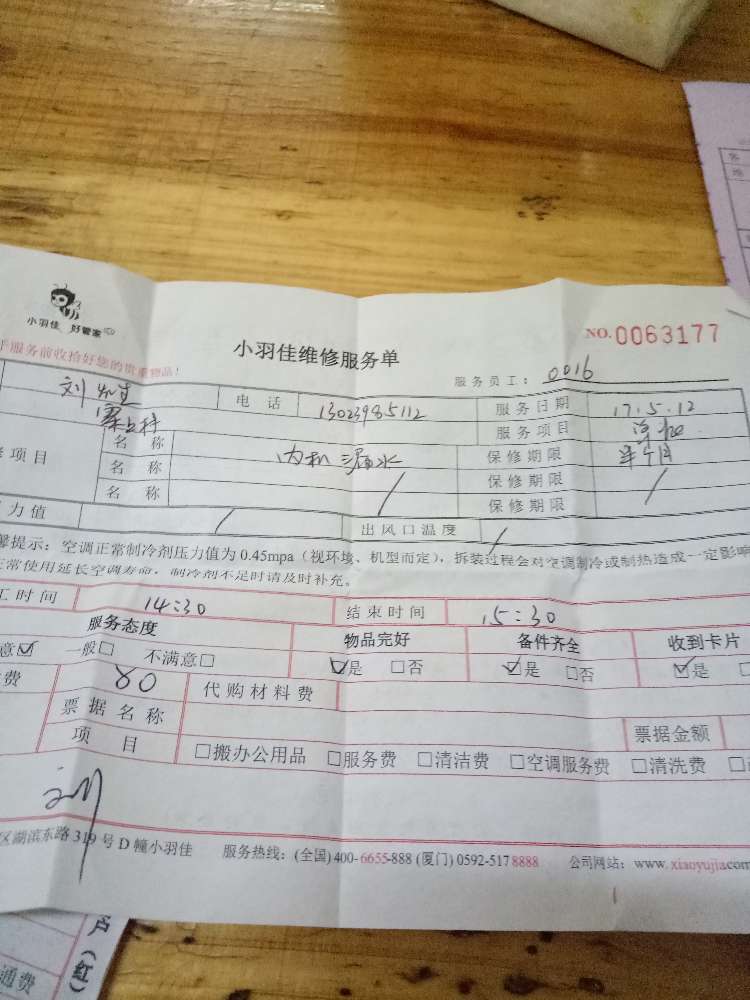 小羽佳 好管家
服务前收拾好您的贵重物品!
小羽佳维修服务单
NO.0063177
服务员工: 0016
刘
电话 13023985112 服务日期 17.5.12
服务项目
项目 名称 内机漏水 保修期限 半个月
名称 保修期限
名称 保修期限
力值 / 出风口温度 /
提示: 空调正常制冷剂压力值为 0.45mpa (视环境、机型而定), 拆装过程会对空调制冷或制热造成一定影响
常使用延长空调寿命, 制冷剂不足时请及时补充。
工时间 14:30 结束时间 15:30
服务态度 物品完好 备件齐全 收到卡片
意☑ 一般□ 不满意□ ☑是 □否 ☑是 □否 ☑是
费 80 代购材料费
票据名称 票据金额
项目 □搬办公用品 □服务费 □清洁费 □空调服务费 □清洗费
刘
区湖滨东路 319 号 D 幢小羽佳 服务热线: (全国) 400-6655-888 (厦门) 0592-5178888 公司网站: www.xiaoyujia.com
户(红)
通费